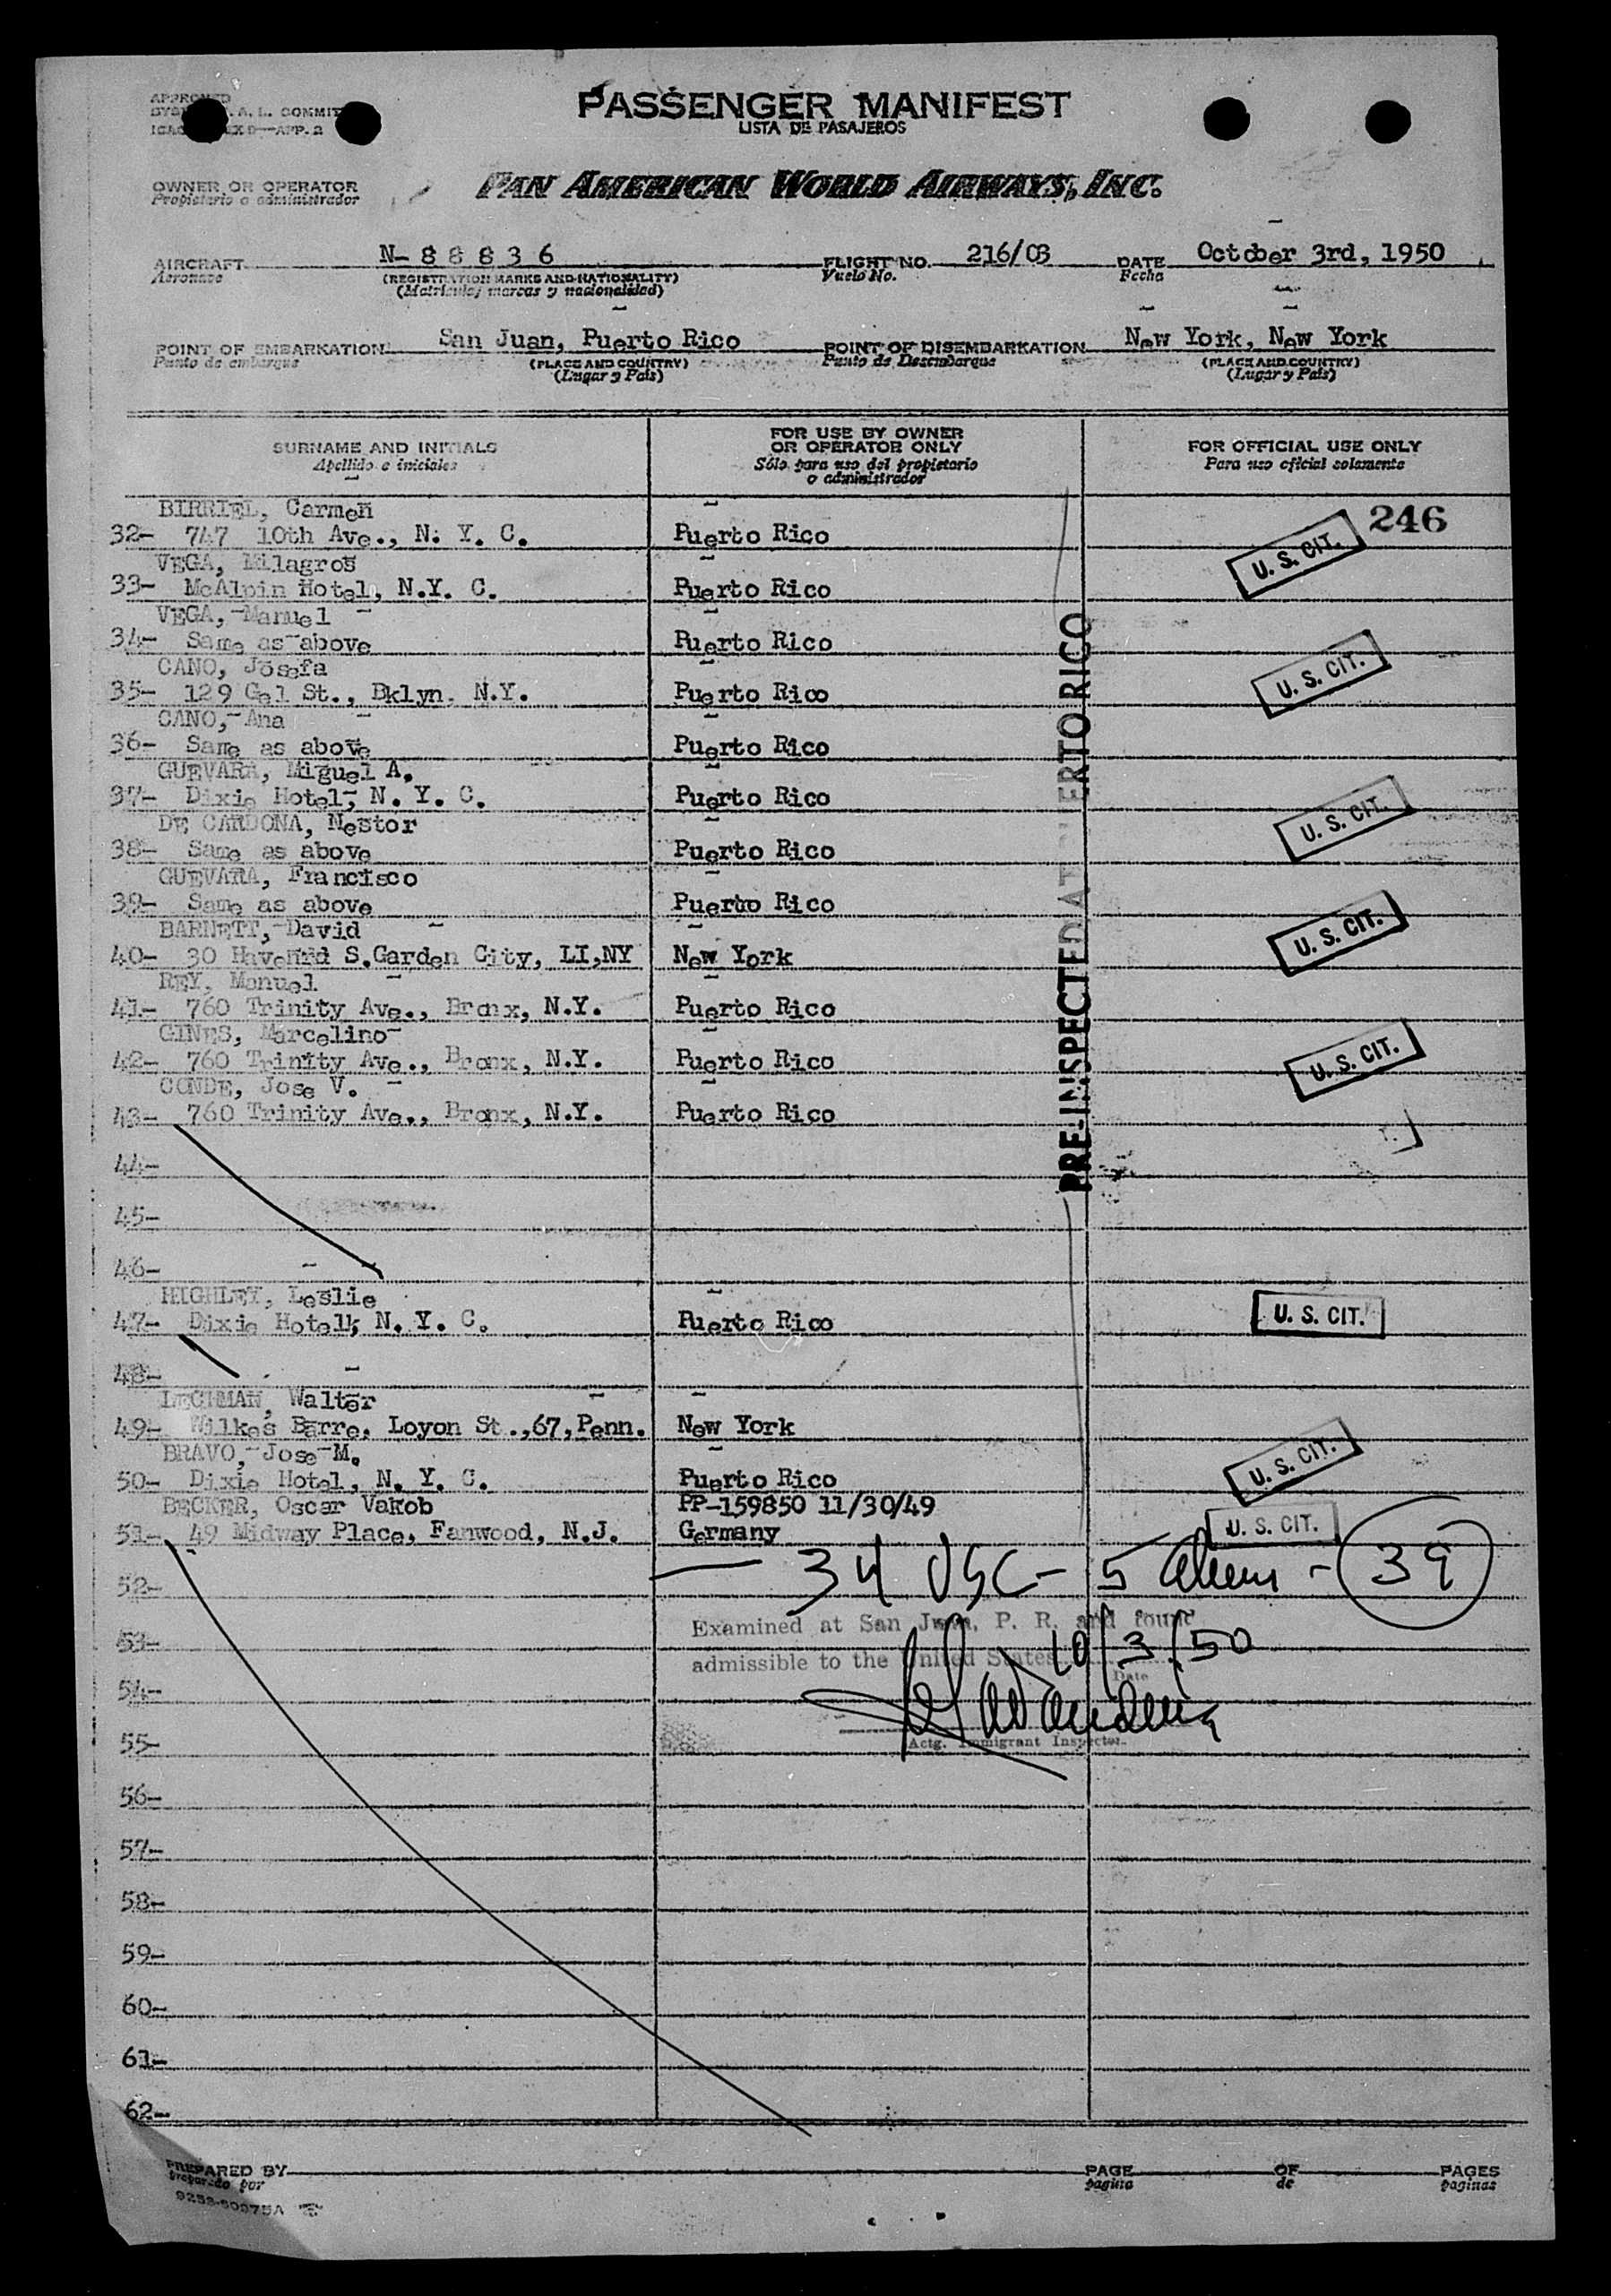 APPROVED
PASSENGER MANIFEST
LISTA DE PASAJEROS
OWNER OR OPERATOR
Propietario o administrador
PAN AMERICAN WORLD AIRWAYS, INC.
AIRCRAFT N-88836 FLIGHT NO. 216/03 DATE October 3rd, 1950
Aeronave (REGISTRATION MARKS AND NATIONALITY) Vuelo No. Fecha
(Matricula, marcas y nacionalidad)
POINT OF EMBARKATION San Juan, Puerto Rico POINT OF DISEMBARKATION New York, New York
Punto de embarque (PLACE AND COUNTRY) Punto de Desembarque (PLACE AND COUNTRY)
(Lugar y País) (Lugar y País)
SURNAME AND INITIALS FOR USE BY OWNER OR OPERATOR ONLY FOR OFFICIAL USE ONLY
Apellido e iniciales Sólo para uso del propietario o administrador Para uso oficial solamente
BIRRIEL, Carmen 246
32- 747 10th Ave., N. Y. C. Puerto Rico U. S. CIT.
VEGA, Milagros
33- McAlpin Hotel, N.Y. C. Puerto Rico
VEGA, Manuel
34- Same as above Puerto Rico
CANO, Josefa U. S. CIT.
35- 129 Gel St., Bklyn. N.Y. Puerto Rico
CANO, Ana
36- Same as above Puerto Rico
GUEVARA, Miguel A.
37- Dixie Hotel, N. Y. C. Puerto Rico
DE CARDONA, Nestor U. S. CIT.
38- Same as above Puerto Rico
GUEVARA, Francisco
39- Same as above Puerto Rico
BARNETT, David U. S. CIT.
40- 30 S. Garden City, LI,NY New York
REY, Manuel
41- 760 Trinity Ave., Bronx, N.Y. Puerto Rico
GINES, Marcelino
42- 760 Trinity Ave., Bronx, N.Y. Puerto Rico U. S. CIT.
CONDE, Jose V.
43- 760 Trinity Ave., Bronx, N.Y. Puerto Rico
PRE-INSPECTED AT PUERTO RICO
44-
45-
46-
HIGHLEY, Leslie
47- Dixie Hotel, N. Y. C. Puerto Rico U. S. CIT.
48-
LECHMAN, Walter
49- Wilkes Barre, Loyon St.,67,Penn. New York
BRAVO, Jose M. U. S. CIT.
50- Dixie Hotel, N. Y. C. Puerto Rico
BECKER, Oscar Vakob PP-159850 11/30/49
51- 49 Midway Place, Fanwood, N.J. Germany U. S. CIT.
52- — 34 USC - 5 Aliens - 39
Examined at San Juan, P. R. and found
53- admissible to the United States 10/3/50
54- Date
55- Actg. Immigrant Inspector
56-
57-
58-
59-
60-
61-
62-
PREPARED BY PAGE OF PAGES
Preparado por pagina de paginas